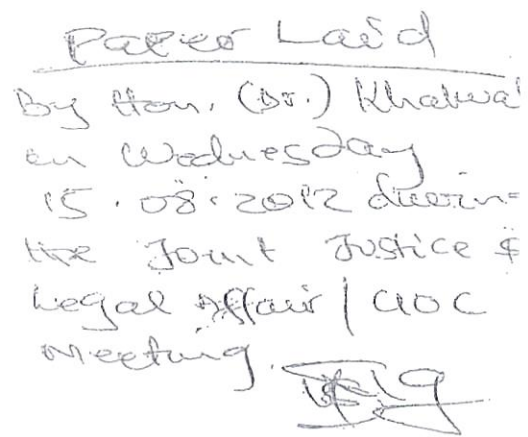 Paper Laid
By Hon. (Dr.) Khalwal
on Wednesday
15.08.2012 during
the Joint Justice &
Legal Affair | CIOC
Meeting.